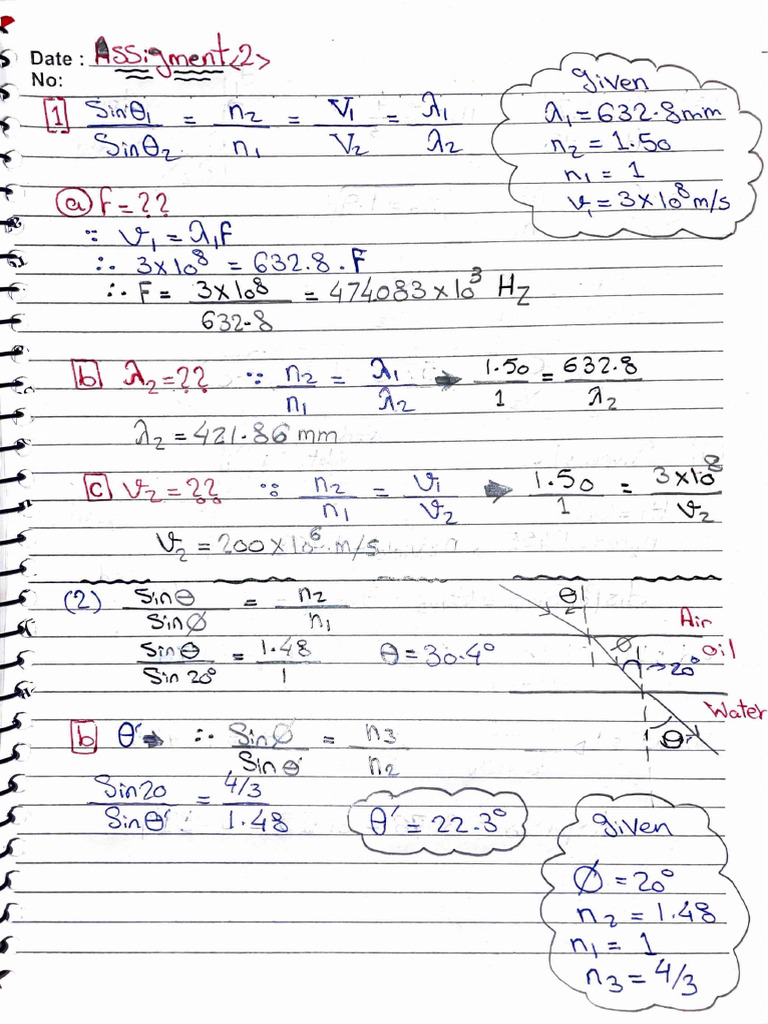 Date : Assigment <2>
No:
1 Sinθ₁/Sinθ₂ = n₂/n₁ = V₁/V₂ = λ₁/λ₂
given
λ₁ = 632.8mm
n₂ = 1.50
n₁ = 1
v₁ = 3×10⁸ m/s
a f = ??
∵ v₁ = λ₁F
∴ 3×10⁸ = 632.8 . F
∴ F = 3×10⁸/632.8 = 474083×10³ Hz
b λ₂ = ?? ∵ n₂/n₁ = λ₁/λ₂ → 1.50/1 = 632.8/λ₂
λ₂ = 421.86 mm
c v₂ = ?? ∵ n₂/n₁ = v₁/v₂ → 1.50/1 = 3×10⁸/v₂
v₂ = 200×10⁶ m/s
(2) Sinθ/SinØ = n₂/n₁
Sinθ/Sin20° = 1.48/1 θ = 30.4°
θ
Air
Ø oil
→20°
Water
θ'
b θ' → ∴ SinØ/Sinθ' = n₃/n₂
Sin20/Sinθ' = 4/3/1.48 θ' = 22.3°
given
Ø = 20°
n₂ = 1.48
n₁ = 1
n₃ = 4/3